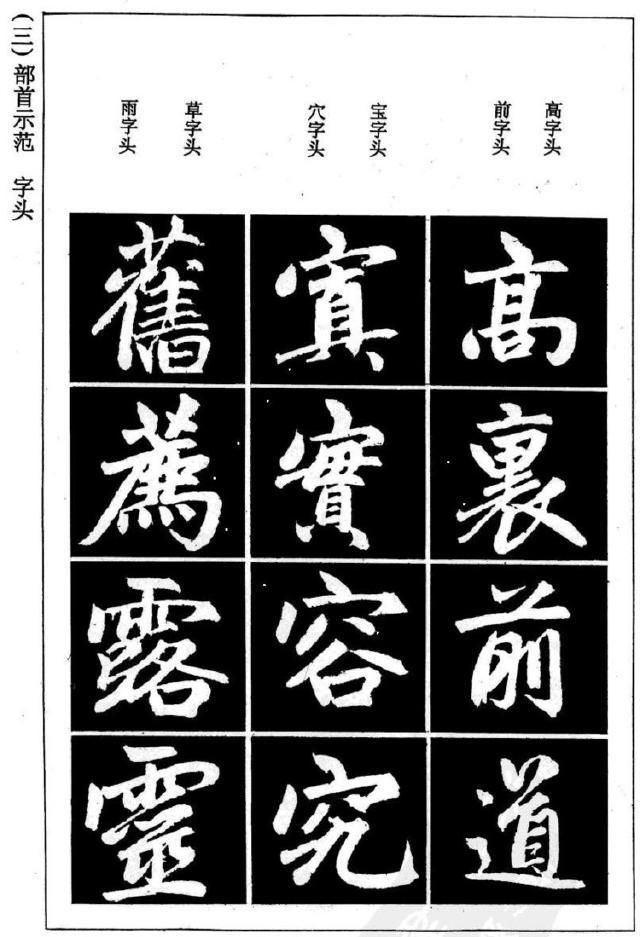 (三)部首示范 字头
高字头
前字头
宝字头
穴字头
草字头
雨字头
高
裏
前
道
寘
實
容
究
舊
薦
露
靈